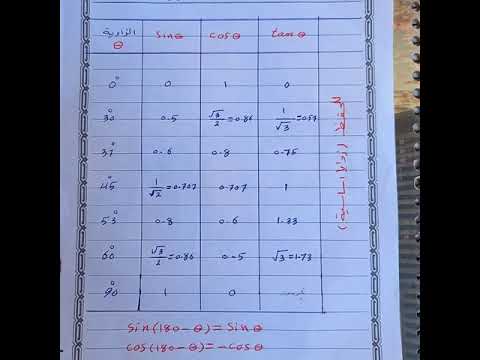 الزاوية θ sinθ cosθ tanθ
0° 0 1 0
30° 0.5 √3/2 = 0.86 1/√3 = 0.57
37° 0.6 0.8 0.75
45° 1/√2 = 0.707 0.707 1
53° 0.8 0.6 1.33
60° √3/2 = 0.86 0.5 √3 = 1.73
90° 1 0
sin(180-θ) = sinθ
cos(180-θ) = -cosθ